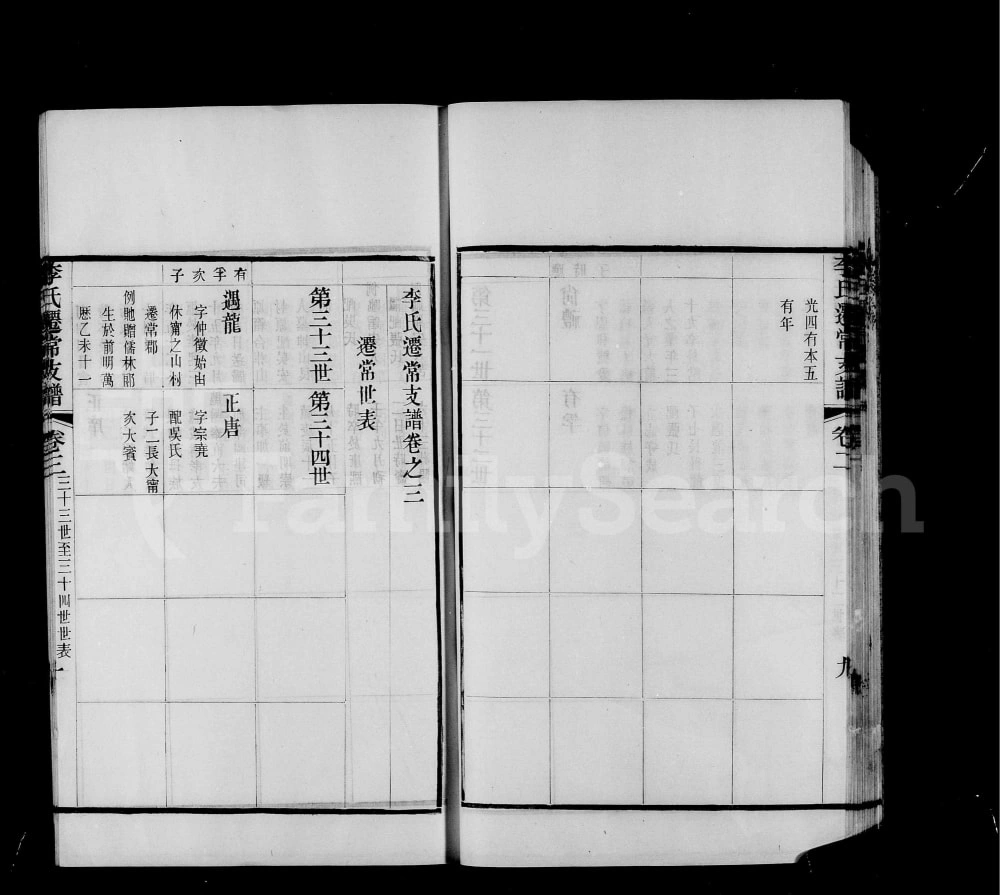 李氏遷常支譜
卷二
九
光四有本五
有年
李氏遷常支譜卷之三
遷常世表
第三十三世
第三十四世
有孚次子
遇龍
字仲徵始由
休甯之山村
遷常郡
例馳贈儒林郎
生於前明萬
歷乙未十一
正唐
字宗堯
配吳氏
子二長大甯
次大賓
李氏遷常支譜
卷三
三十三世至三十四世世表
十
FamilySearch